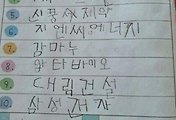 5. 시풍제약
6. 지엔씨에너지
7. 감마누
8. 왕타바이오
9. 대림건설
10. 삼성전자